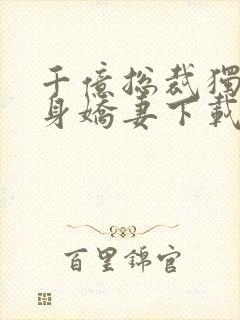 千億总裁獨
身嬌妻下載
百里錦官